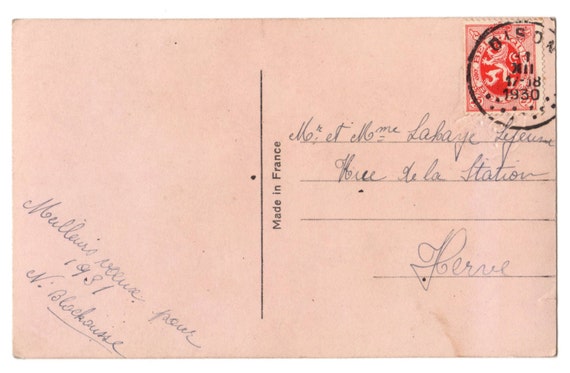 DISON
1
XII
17-18
1930
BEL
Made in France
Mr et Mme Lahaye Lejeune
Rue de la Station
Herve
Meilleurs vœux pour
1931
N. Blockousse